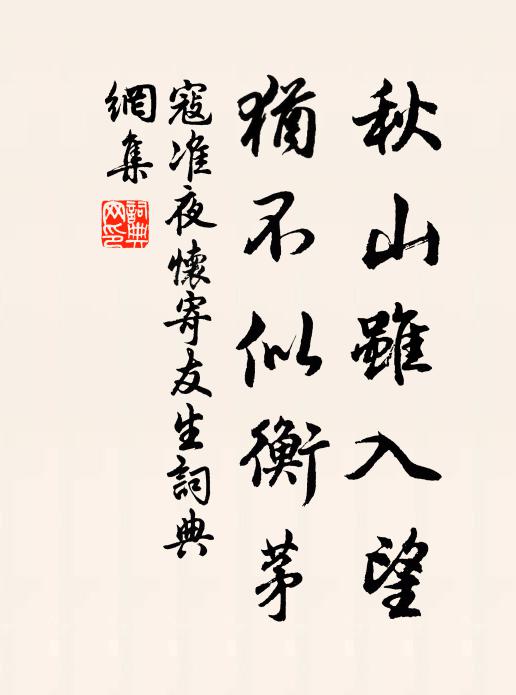 秋山雖入望
猶不似衡茅
寇准夜懷寄友生詞典
網集
詞典網印